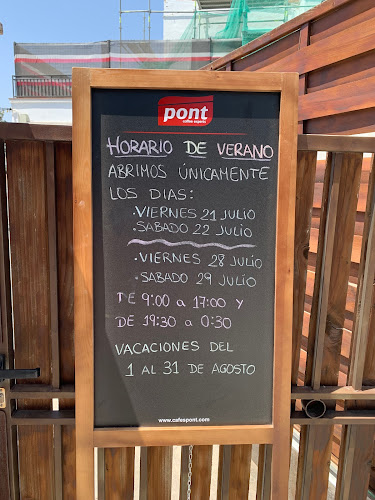 pont
cafès experts
HORARIO DE VERANO
ABRIMOS ÚNICAMENTE
LOS DIAS:
·VIERNES 21 JULIO
·SABADO 22 JULIO
·VIERNES 28 JULIO
·SABADO 29 JULIO
DE 9:00 a 17:00 Y
DE 19:30 a 0:30
VACACIONES DEL
1 AL 31 DE AGOSTO
www.cafespont.com